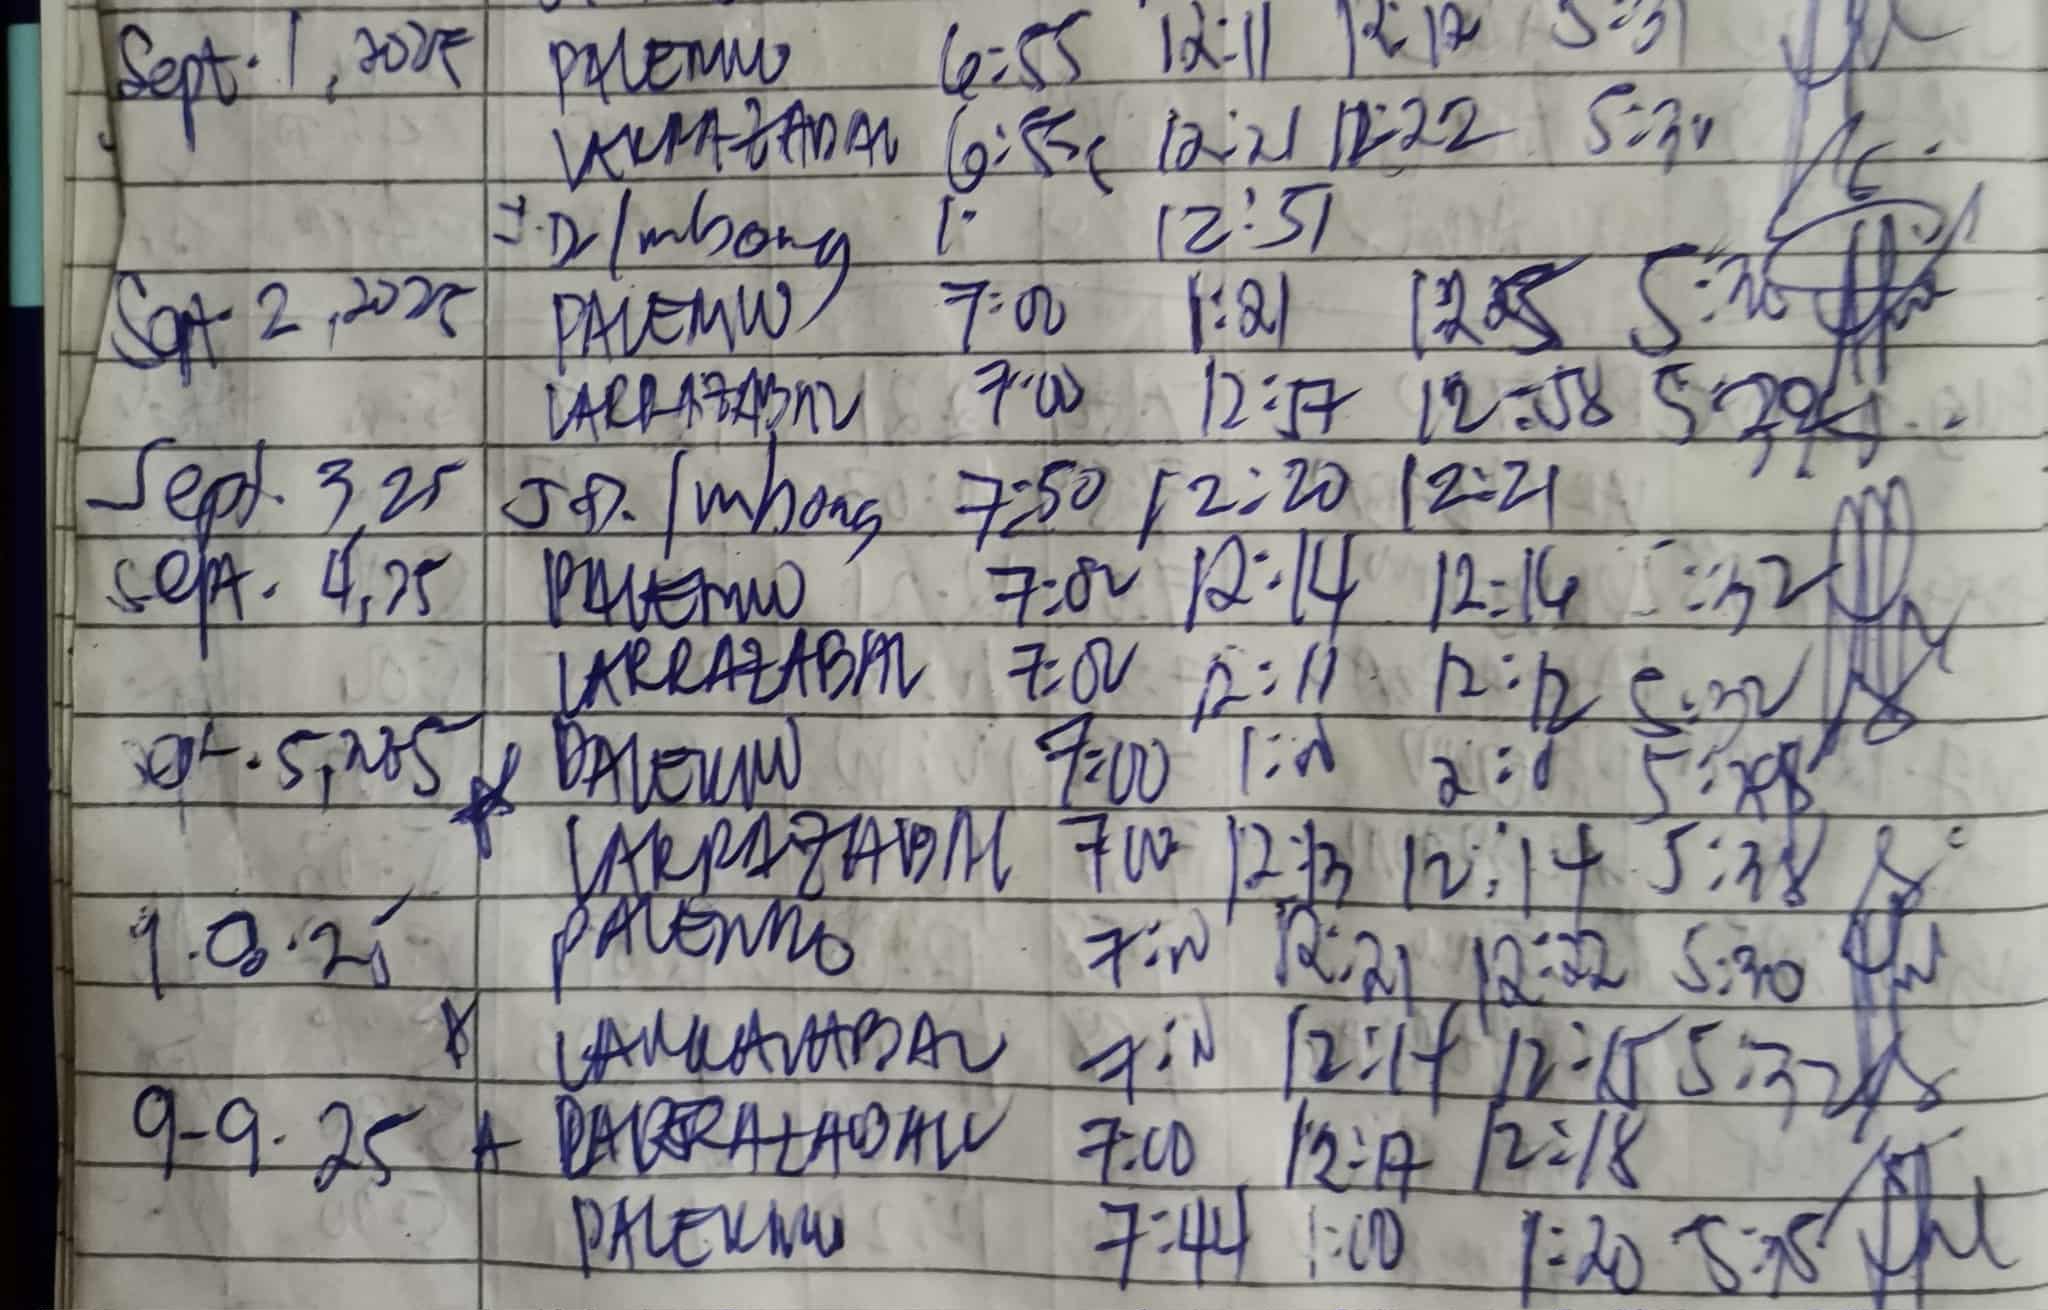 Sept. 1, 2025 PALERMO 6:55 12:11 12:12 5:31
LARRAZABAL 6:55 12:21 12:22 5:30
J.D. Imbong 12:51
Sept. 2, 2025 PALERMO 7:00 1:21 5:30
LARRAZABAL 7:00 12:57 12:58
Sept. 3, 25 J.D. Imbong 7:50 12:20 12:21
Sept. 4, 25 PALERMO 7:00 12:14 12:16 5:32
LARRAZABAL 7:00 12:11 12:12 5:32
Sept. 5, 2025 PALERMO 7:00 5:28
LARRAZABAL 7:00 12:13 12:14 5:38
9.8.25 PALERMO 7:00 12:21 12:22 5:30
LARRAZABAL 7:00 12:14 12:15 5:32
9-9-25 LARRAZABAL 7:00 12:17 12:18
PALERMO 7:44 1:00 1:20 5:35